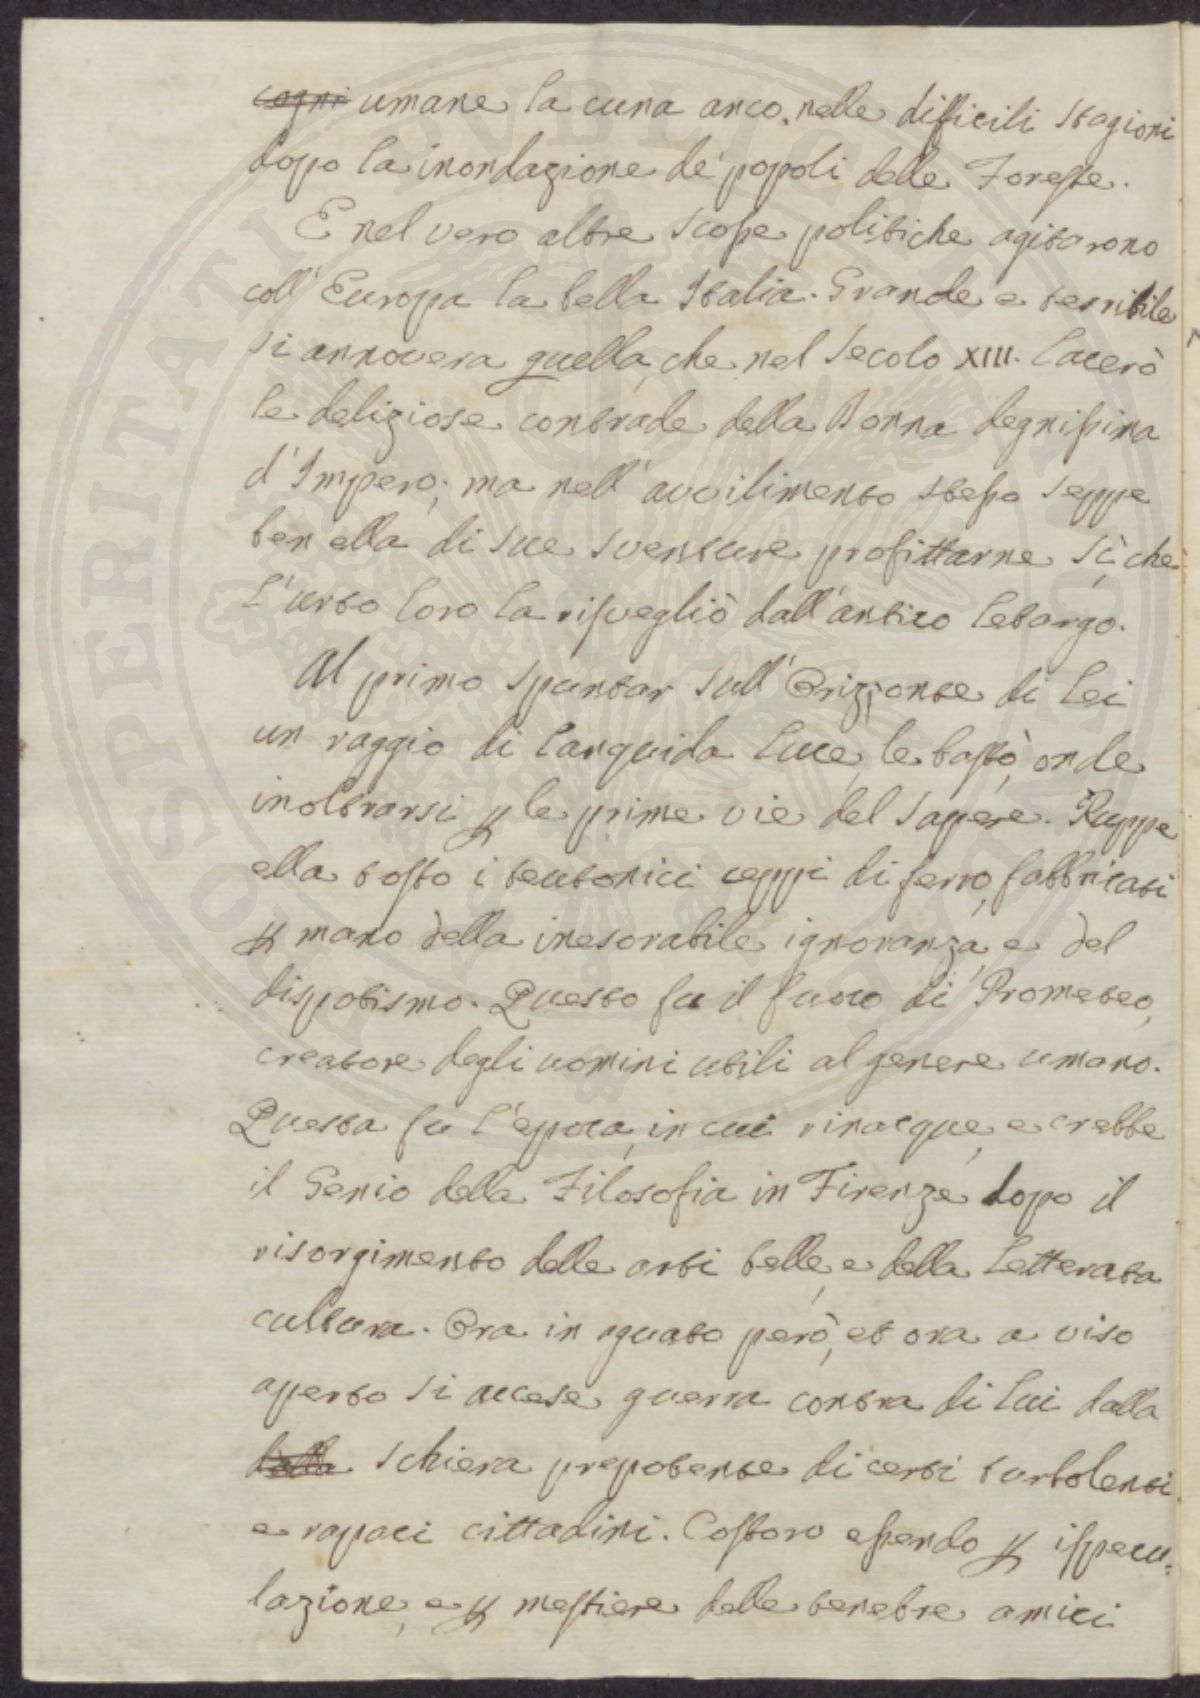 cogni umane la cuna anco nelle difficili stagioni
dopo la inondazione de' popoli delle Foreste.
E nel vero altre scosse politiche agitarono
coll' Europa la bella Italia. Grande e terribile
si annovera quella, che nel Secolo XIII. lacerò
le deliziose contrade della Donna degnissima
d'Impero; ma nell' avvilimento stesso seppe
ben ella di sue sventure profittarne sì che
l'urto loro la risvegliò dall'antico letargo.
Al primo spuntar sull' Orizzonte di lei
un raggio di languida luce, le bastò, onde
inoltrarsi p le prime vie del sapere. Ruppe
ella tosto i teutonici ceppi di ferro, fabbricati
p mano della inesorabile ignoranza, e del
dispotismo. Questo fu il fuoco di Prometeo,
creatore degli uomini utili al genere umano.
Questa fu l'epoca, in cui rinacque, e crebbe
il Genio della Filosofia in Firenze dopo il
risorgimento delle arti belle, e della Letterata
cultura. Ora in aguato però, et ora a viso
aperto si accese guerra contra di lui dalla
dalla schiera prepotente di certi turbolenti
e rapaci cittadini. Costoro essendo p ispecu-
lazione, e p mestiere delle tenebre amici
SOSPERITATI PVBLICAE